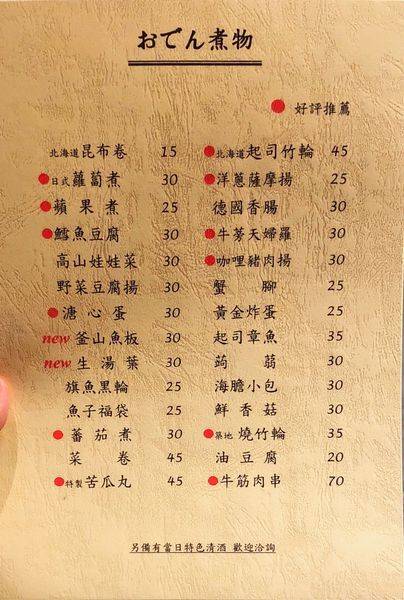 おでん煮物
好評推薦
北海道昆布卷 15
日式蘿蔔煮 30
蘋果煮 25
鱈魚豆腐 30
高山娃娃菜 30
野菜豆腐揚 30
溏心蛋 30
new 釜山魚板 30
new 生湯葉 30
旗魚黑輪 25
魚子福袋 25
蕃茄煮 30
菜卷 45
特製苦瓜丸 45
北海道起司竹輪 45
洋蔥薩摩揚 25
德國香腸 30
牛蒡天婦羅 30
咖哩豬肉揚 30
蟹腳 25
黃金炸蛋 25
起司章魚 35
蒟蒻 30
海膽小包 30
鮮香菇 30
築地燒竹輪 35
油豆腐 20
牛筋肉串 70
另備有當日特色清酒 歡迎洽詢